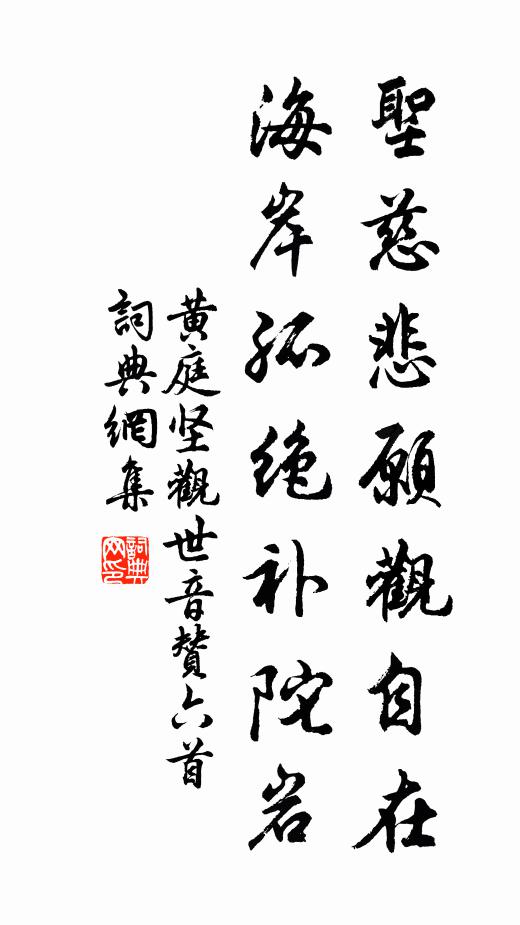 聖慈悲願觀自在
海岸孤绝补陀岩
黄庭坚觀世音贊六首
詞典網集
詞典網印